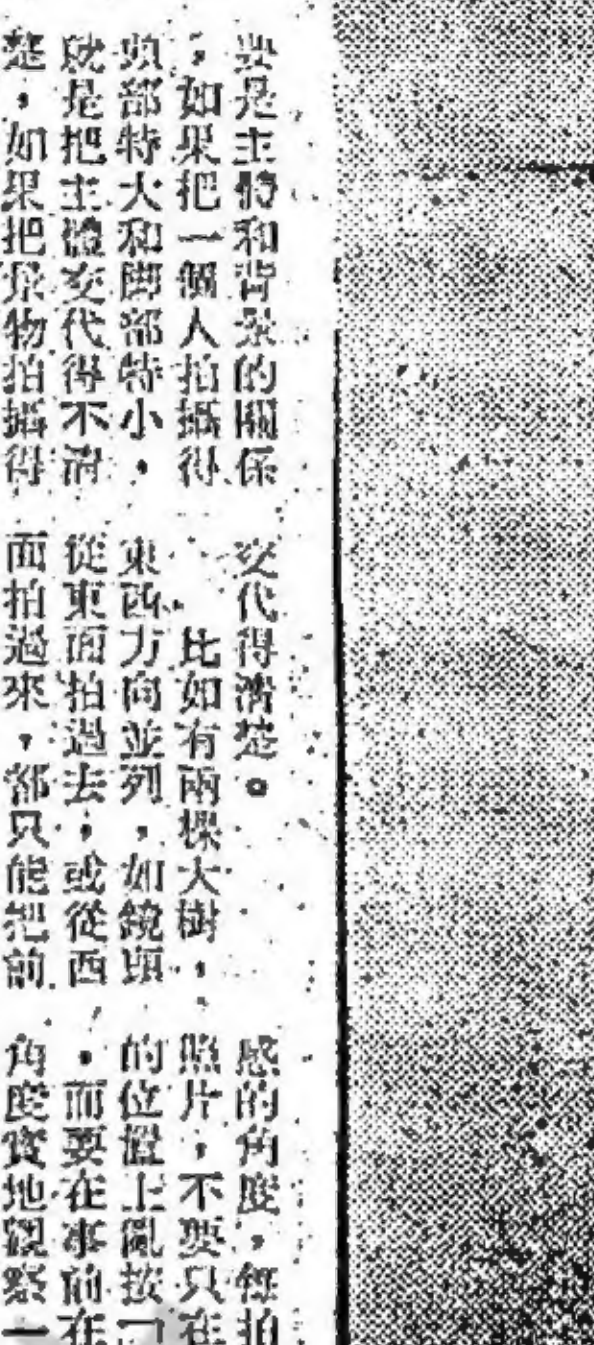 與是主體和背景的關係
，如果把一個人拍攝得
頭部特大和脚部特小，
就是把主體交代得不清
楚，如果把景物拍攝得
交代得清楚。
比如有兩棵大樹，
東西方向並列，如鏡頭
從東面拍過去，或從西
面拍過來，都只能把前
感的角度，每拍
照片，不要只在
的位置上亂按一
，而要在事前在
角度實地觀察一